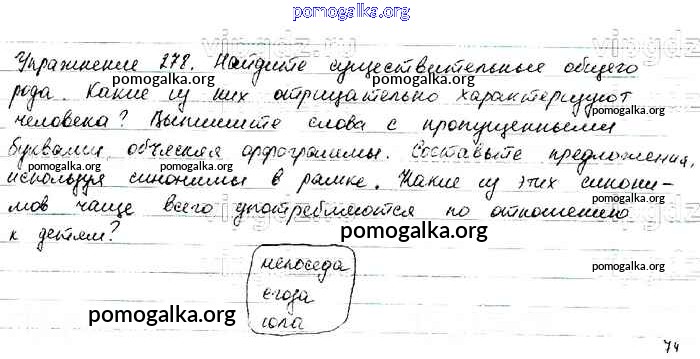 pomogalka.org
Упражнение 278. Найдите существительные общего
рода. Какие из них отрицательно характеризуют
человека? Выпишите слова с пропущенными
буквами, объясняя орфограммы. Составьте предложения,
используя синонимы в рамке. Какие из этих синони-
мов чаще всего употребляются по отношению
к детям?
непоседа
егоза
юла
74
pomogalka.org
pomogalka.org
pomogalka.org
pomogalka.org
pomogalka.org
pomogalka.org
pomogalka.org